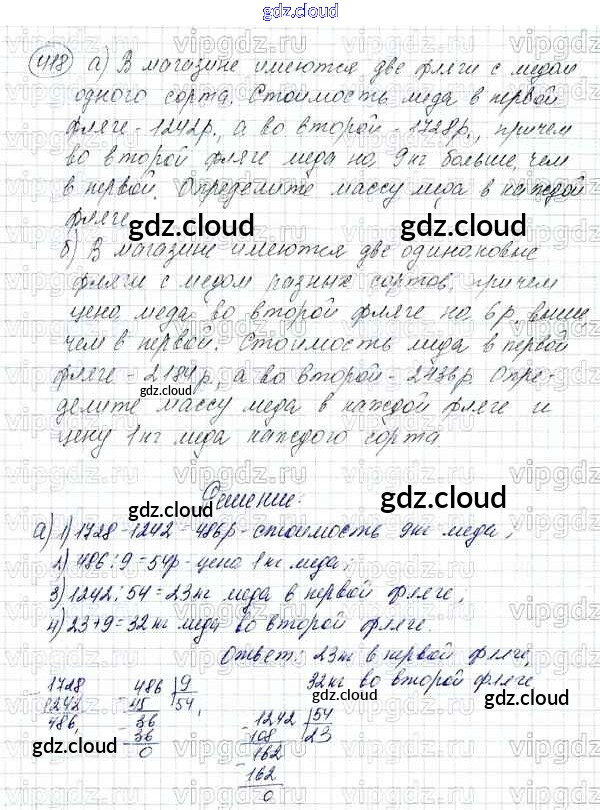 gdz.cloud
418 а) В магазине имеются две фляги с медом
одного сорта. Стоимость меда в первой
фляге - 1242р., а во второй - 1728р., причем
во второй фляге меда на 9кг больше, чем
в первой. Определите массу меда в каждой
фляге.
gdz.cloud gdz.cloud
б) В магазине имеются две одинаковые
фляги с медом разных сортов, причем
цена меда во второй фляге на 6р выше,
чем в первой. Стоимость меда в первой
фляге - 2184р, а во второй - 2436р. Опре-
gdz.cloud
делите массу меда в каждой фляге и
цену 1кг меда каждого сорта
Решение:
gdz.cloud gdz.cloud
а) 1) 1728-1242=486р-стоимость 9кг меда;
2) 486:9=54р-цена 1кг меда;
3) 1242:54=23кг меда в первой фляге;
4) 23+9=32кг меда во второй фляге.
Ответ: 23кг в первой фляге,
32кг во второй фляге
gdz.cloud
1728 486 9
1242 45 54
486 36 1242 54
36 108 23
0 162
gdz.cloud gdz.cloud
162
0